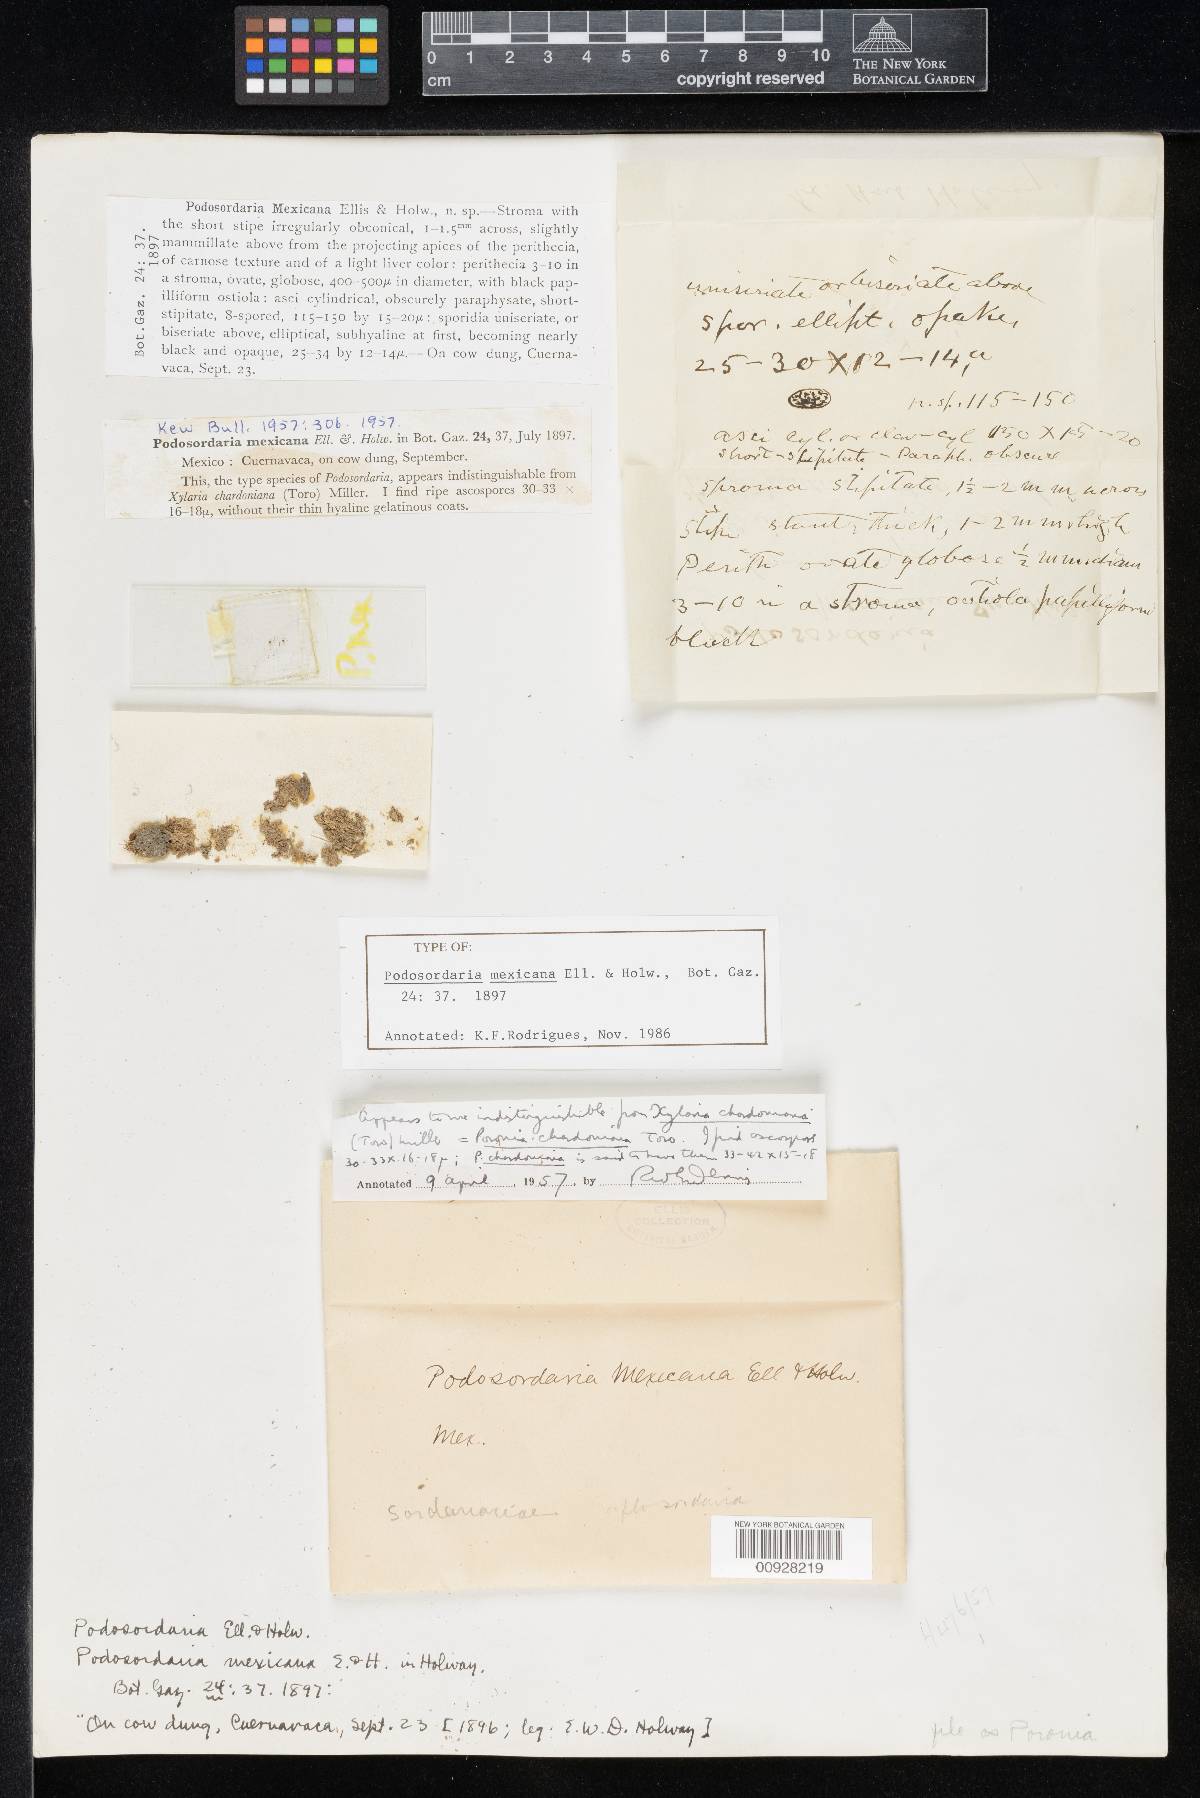 0 1 2 3 4 5 6 7 8 9 10
cm
copyright reserved
THE NEW YORK
BOTANICAL GARDEN
Bot. Gaz. 24: 37.
1897
Podosordaria Mexicana Ellis & Holw., n. sp.—Stroma with
the short stipe irregularly obconical, 1–1.5mm across, slightly
mammillate above from the projecting apices of the perithecia,
of carnose texture and of a light liver color: perithecia 3–10 in
a stroma, ovate, globose, 400–500μ in diameter, with black pap-
illiform ostiola: asci cylindrical, obscurely paraphysate, short-
stipitate, 8-spored, 115–150 by 15–20μ: sporidia uniseriate, or
biseriate above, elliptical, subhyaline at first, becoming nearly
black and opaque, 25–34 by 12–14μ.—On cow dung, Cuerna-
vaca, Sept. 23.
uniseriate or biseriate above
spor. ellipt. opake,
25–30 X 12–14μ
n. sp. 115–150
asci cyl. or clav-cyl 150 X 15–20
short-stipitate – Paraph. obscure
stroma stipitate, 1½–2 mm across
stipe stout, thick, 1–2 mm high
Perith ovate globose ½ mm diam
3–10 in a stroma, ostiola papilliform
black
Kew Bull. 1957: 306. 1957.
Podosordaria mexicana Ell. & Holw. in Bot. Gaz. 24, 37, July 1897.
Mexico: Cuernavaca, on cow dung, September.
This, the type species of Podosordaria, appears indistinguishable from
Xylaria chardoniana (Toro) Miller. I find ripe ascospores 30–33 ×
16–18μ, without their thin hyaline gelatinous coats.
P. mex
TYPE OF:
Podosordaria mexicana Ell. & Holw., Bot. Gaz.
24: 37. 1897
Annotated: K.F.Rodrigues, Nov. 1986
Appears to me indistinguishable from Xylaria chardoniana
(Toro) Miller = Poronia chardoniana Toro. I find ascospores
30–33 x 16–18μ; P. chardoniana is said to have them 33–42 x 15–18
Annotated 9 April, 1957, by
ELLIS
COLLECTION
Podosordaria Mexicana Ell & Holw.
Mex.
Sordariaceae
NEW YORK BOTANICAL GARDEN
00928219
Podosordaria Ell. & Holw.
Podosordaria mexicana E. & H. in Holway,
Bot. Gaz. 24: 37. 1897:
"On cow dung, Cuernavaca, Sept. 23 [1896; leg. E. W. D. Holway]
file as Poronia